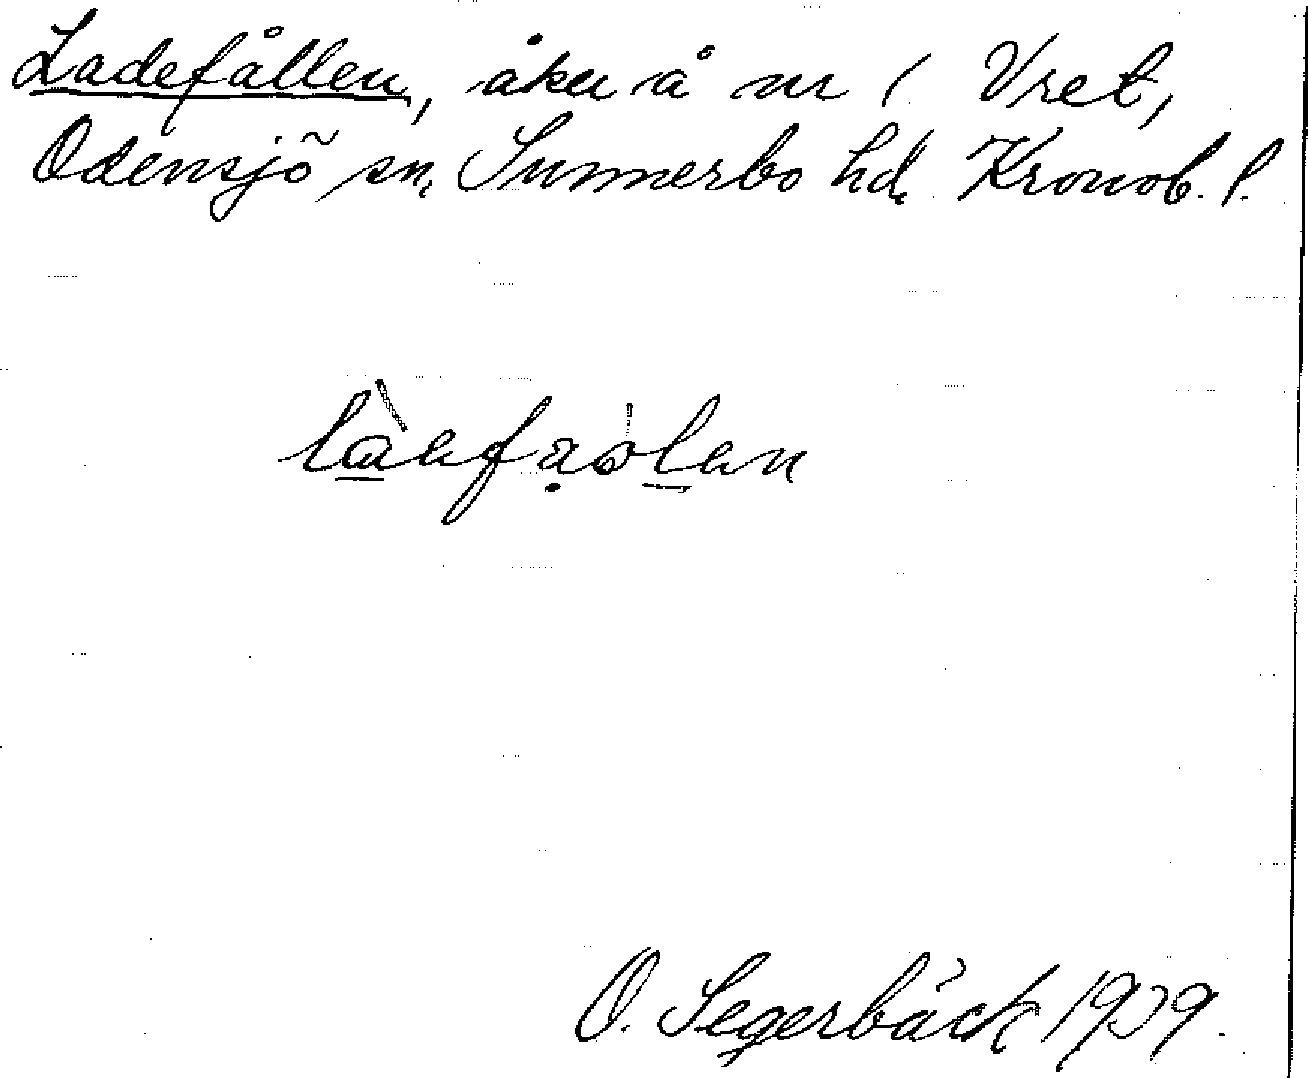 Ladefållen, åker å nr 1 Vret,
Odensjö sn, Sunnerbo hd, Kronob. l.
O. Segerbäck 1929.